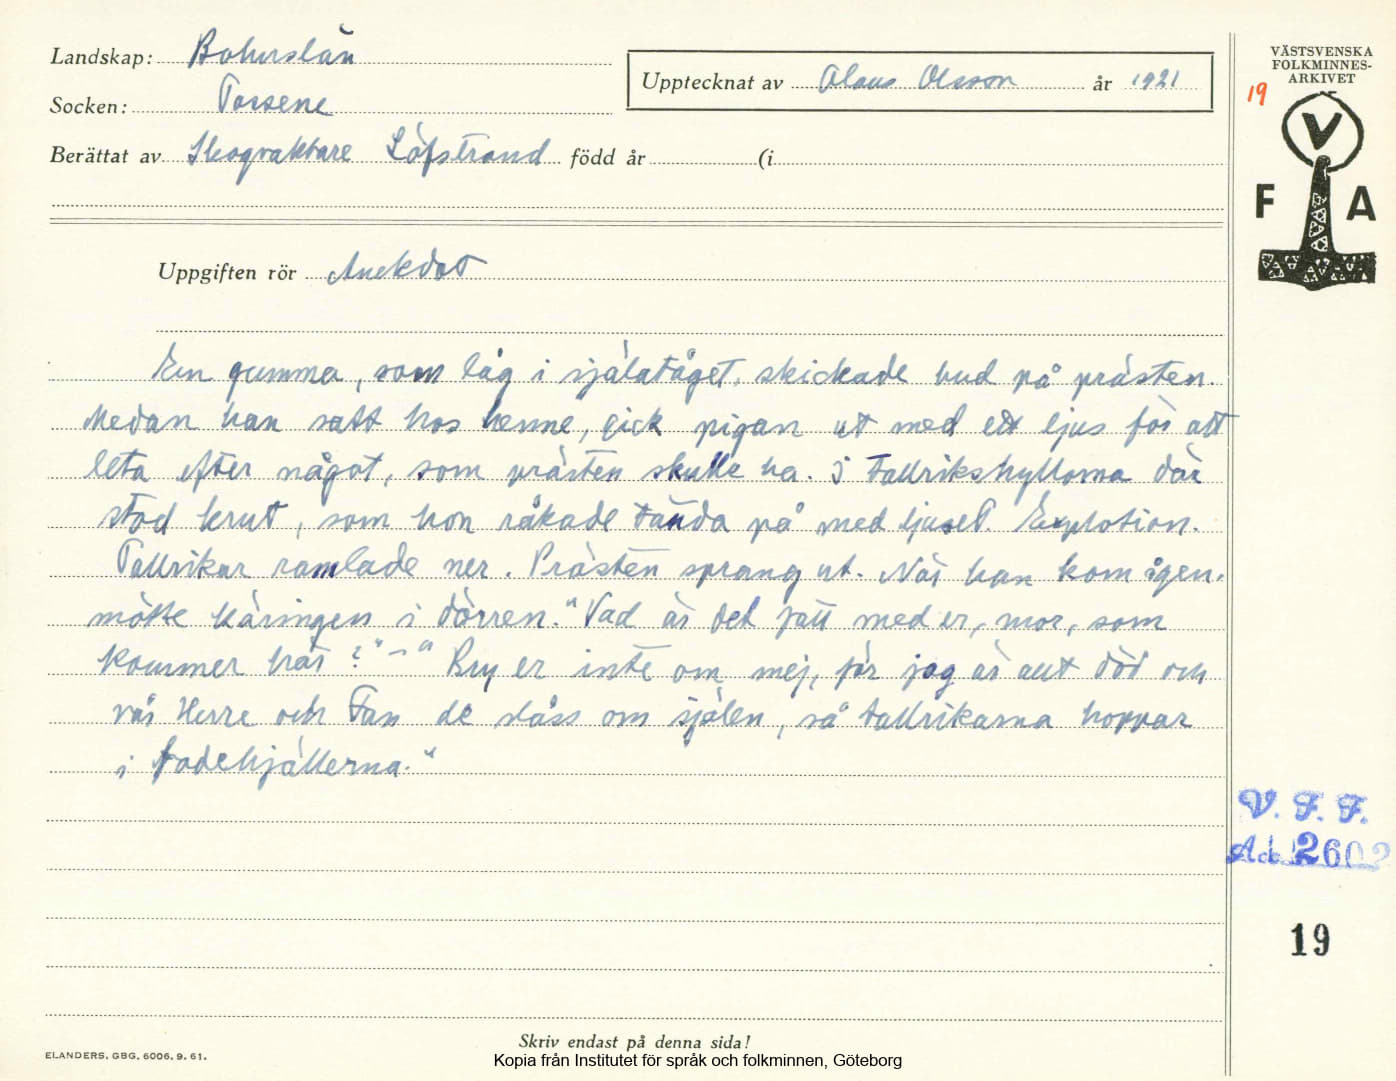 Landskap: Bohuslän
Socken: Tossene
Berättat av Skogvaktare Löfstrand född år (i
Upptecknat av Olaus Olsson år 1921
VÄSTSVENSKA
FOLKMINNES-
ARKIVET
19
V
F A
Uppgiften rör Anekdot
En gumma, som låg i själatåget, skickade bud på prästen.
Medan han satt hos henne, gick pigan ut med ett ljus för att
leta efter något, som prästen skulle ha. I tallrikshyllorna där
stod krut, som hon råkade tända på med ljuset. Explotion.
Tallrikar ramlade ner. Prästen sprang ut. När han kom igen,
mötte käringen i dörren. "Vad är det fatt med er, mor, som
kommer här?" - " Bry er inte om mej, för jag är allt död och
vår Herre och Fan de slåss om själen, så tallrikarna hoppar
i
V. F. F.
Acc. 2602
19
Skriv endast på denna sida!
ELANDERS, GBG. 6006. 9. 61.
Kopia från Institutet för språk och folkminnen, Göteborg